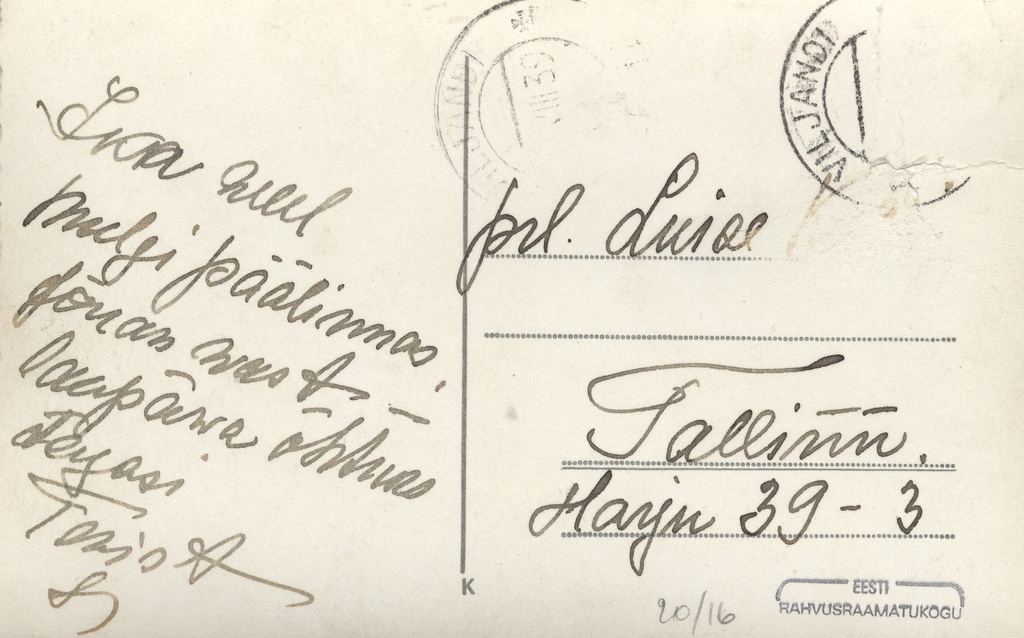 Ikka weel
mulgi päälinnas,
jõuan wast
laupäewa õhtuks
tagasi
VILJANDI
VIII 39
VILJANDI
prl. Luise
Tallinn.
Harju 39 - 3
K
20/16
EESTI
RAHVUSRAAMATUKOGU